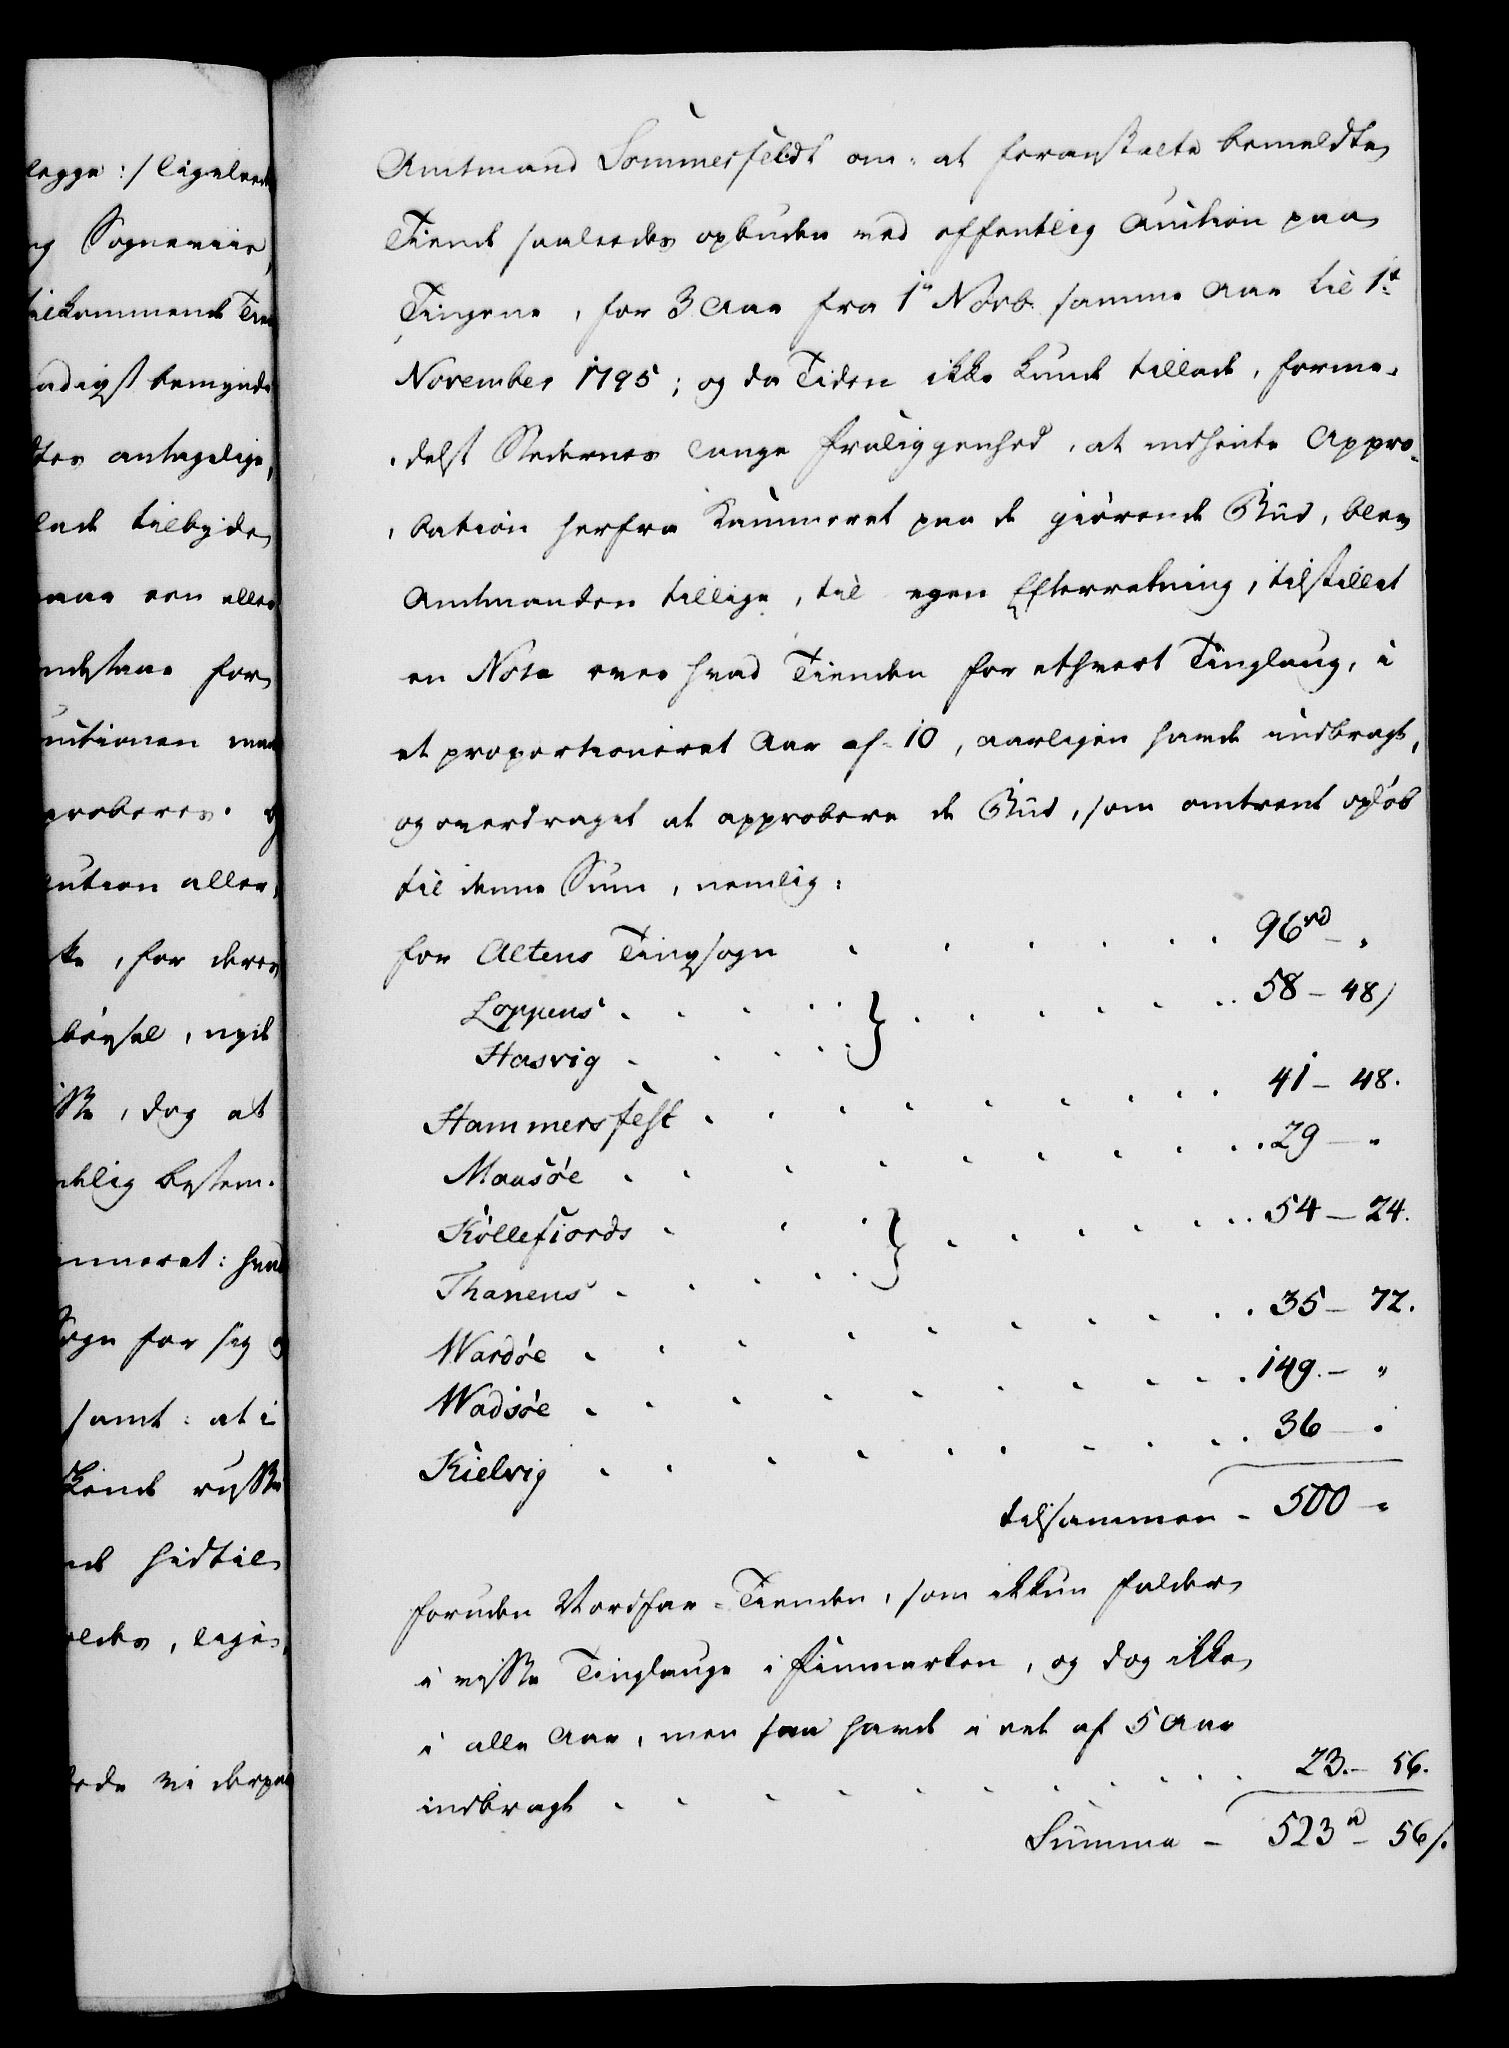 legge :/ ligelede
og Sogneviis,
tilkommende Tien
aadigst bemynde
tes antagelige,
lade tilbyde
paa een eller
indestaae for
auctionen maa
probere. og
aution aller,
ke, for deres
bøxsel, nyde
iske, dog at
ndelig bestem-
mmeret: hvad
Sogn for sig og
samt: at i
kiende russiske
nde hidtil
ledes, lige,
tede vi derpaa
Amtmand Sommerfeldt om: at foranstalte bemeldte
Tiende saaledes opbuden ved offentlig Auction paa
Tingene, for 3 Aar fra 1ste Novb. samme Aar til 1ste
November 1795; og da Tiden ikke kunde tillade, forme-
delst Stedernes lange Fraliggenhed, at indhente Appro-
bation herfra Kammeret paa de giørende Bud, blev
Amtmanden tillige, til egen Efterretning, tilstillet
en Nota over hvad Tienden for ethvert Tinglaug, i
et proportioneret Aar af 10, aarligen havde indbragt,
og overdraget at approbere de Bud, som omtrent opløb
til denne Sum, nemlig:
for Altens Tingsogn . . . . . . 96 rd - "
Loppens . . . . . } . . . . . . 58 - 48 /
Hasvig . . . . .
Hammersfest . . . . . . . . 41 - 48.
Maasøe . . . . . . . . . 29 - "
Kollefiords . . . } . . . . . . 54 - 24.
Thanens . . . . .
Wardøe . . . . . . . . . 35 - 72.
Wadsøe . . . . . . . . . 149. - "
Kielvig . . . . . . . . . 36 - "
tilsammen - 500 - "
foruden Vordfar-Tienden, som ikkun falder
i visse Tinglauge i Finmarken, og dog ikke
i alle Aar, men saa havde i eet af 5 Aar
indbragt . . . . . . . . . 23. - 56.
Summa - 523 rd - 56 /.